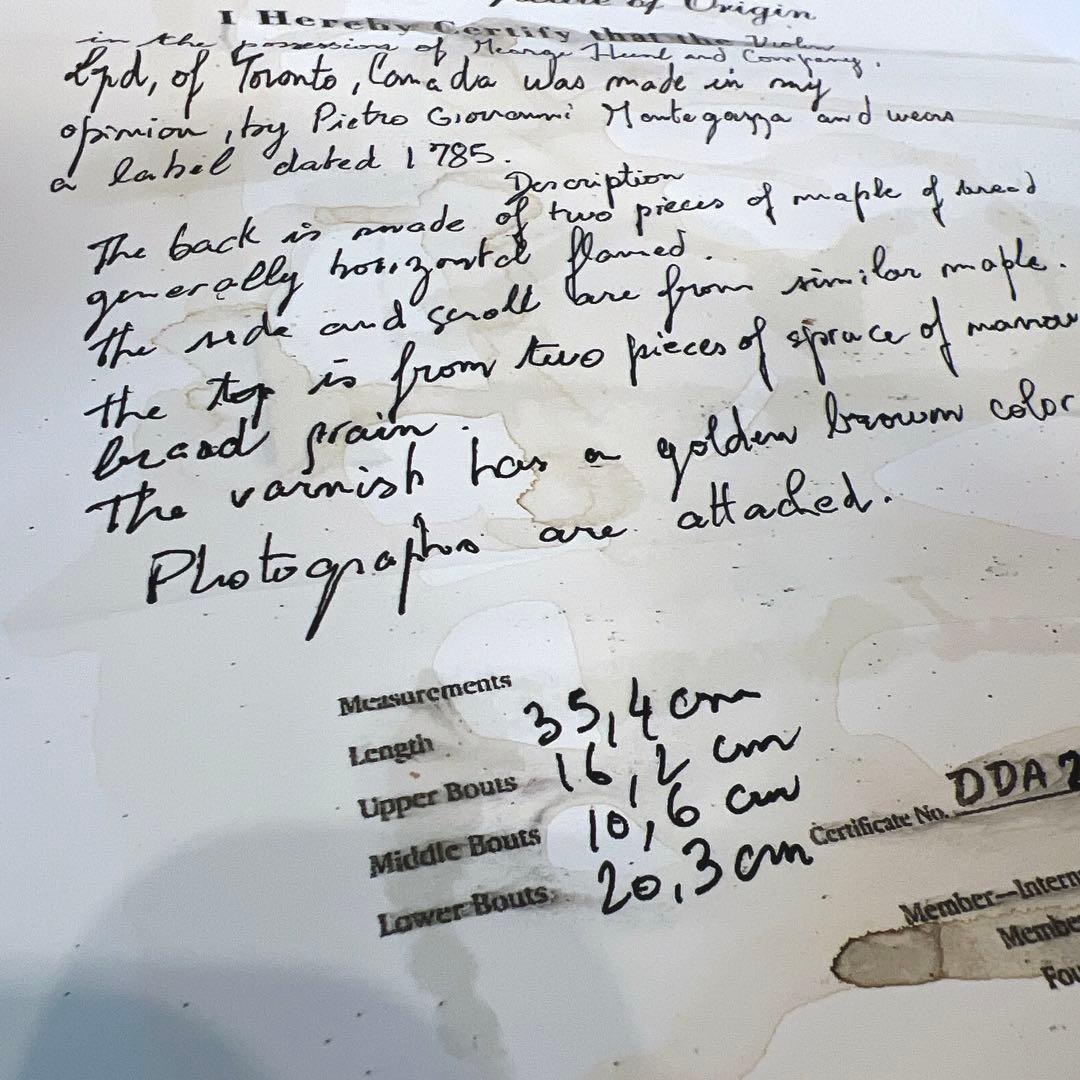 of Origin
I Hereby Certify that the Violin
in the possession of George Heinl and Company,
Ltd, of Toronto, Canada was made in my
opinion, by Pietro Giovanni Mantegazza and wears
a label dated 1785.
Description
The back is made of two pieces of maple of broad
generally horizontal flamed.
the side and scroll are from similar maple.
the top is from two pieces of spruce of narrow
broad grain.
The varnish has a golden brown color
Photographs are attached.
Measurements
Length 35,4 cm
Upper Bouts 16,2 cm
Middle Bouts 10,6 cm
Lower Bouts 20,3 cm
Certificate No. DDA 2
Member—Intern
Membe
Fou